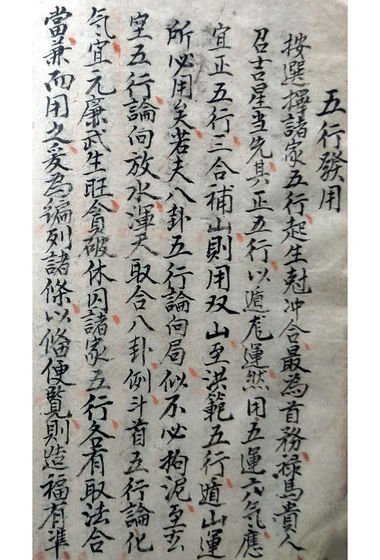 五行發用
按選擇諸家五行起生尅冲合最為首務祿馬貴人
召吉星当先其正五行以遁竜運然用五運六氣應
宜正五行三合補山則用双山至洪範五行遁山運
所必用矣若夫八卦五行論向局似不必拘泥至玄
空五行論向放水渾天取合八卦例斗首五行論化
气宜元廉武生旺貪破休囚諸家五行各有取法合
當兼而用之爰為編列諸條以俻便覽則造福有準